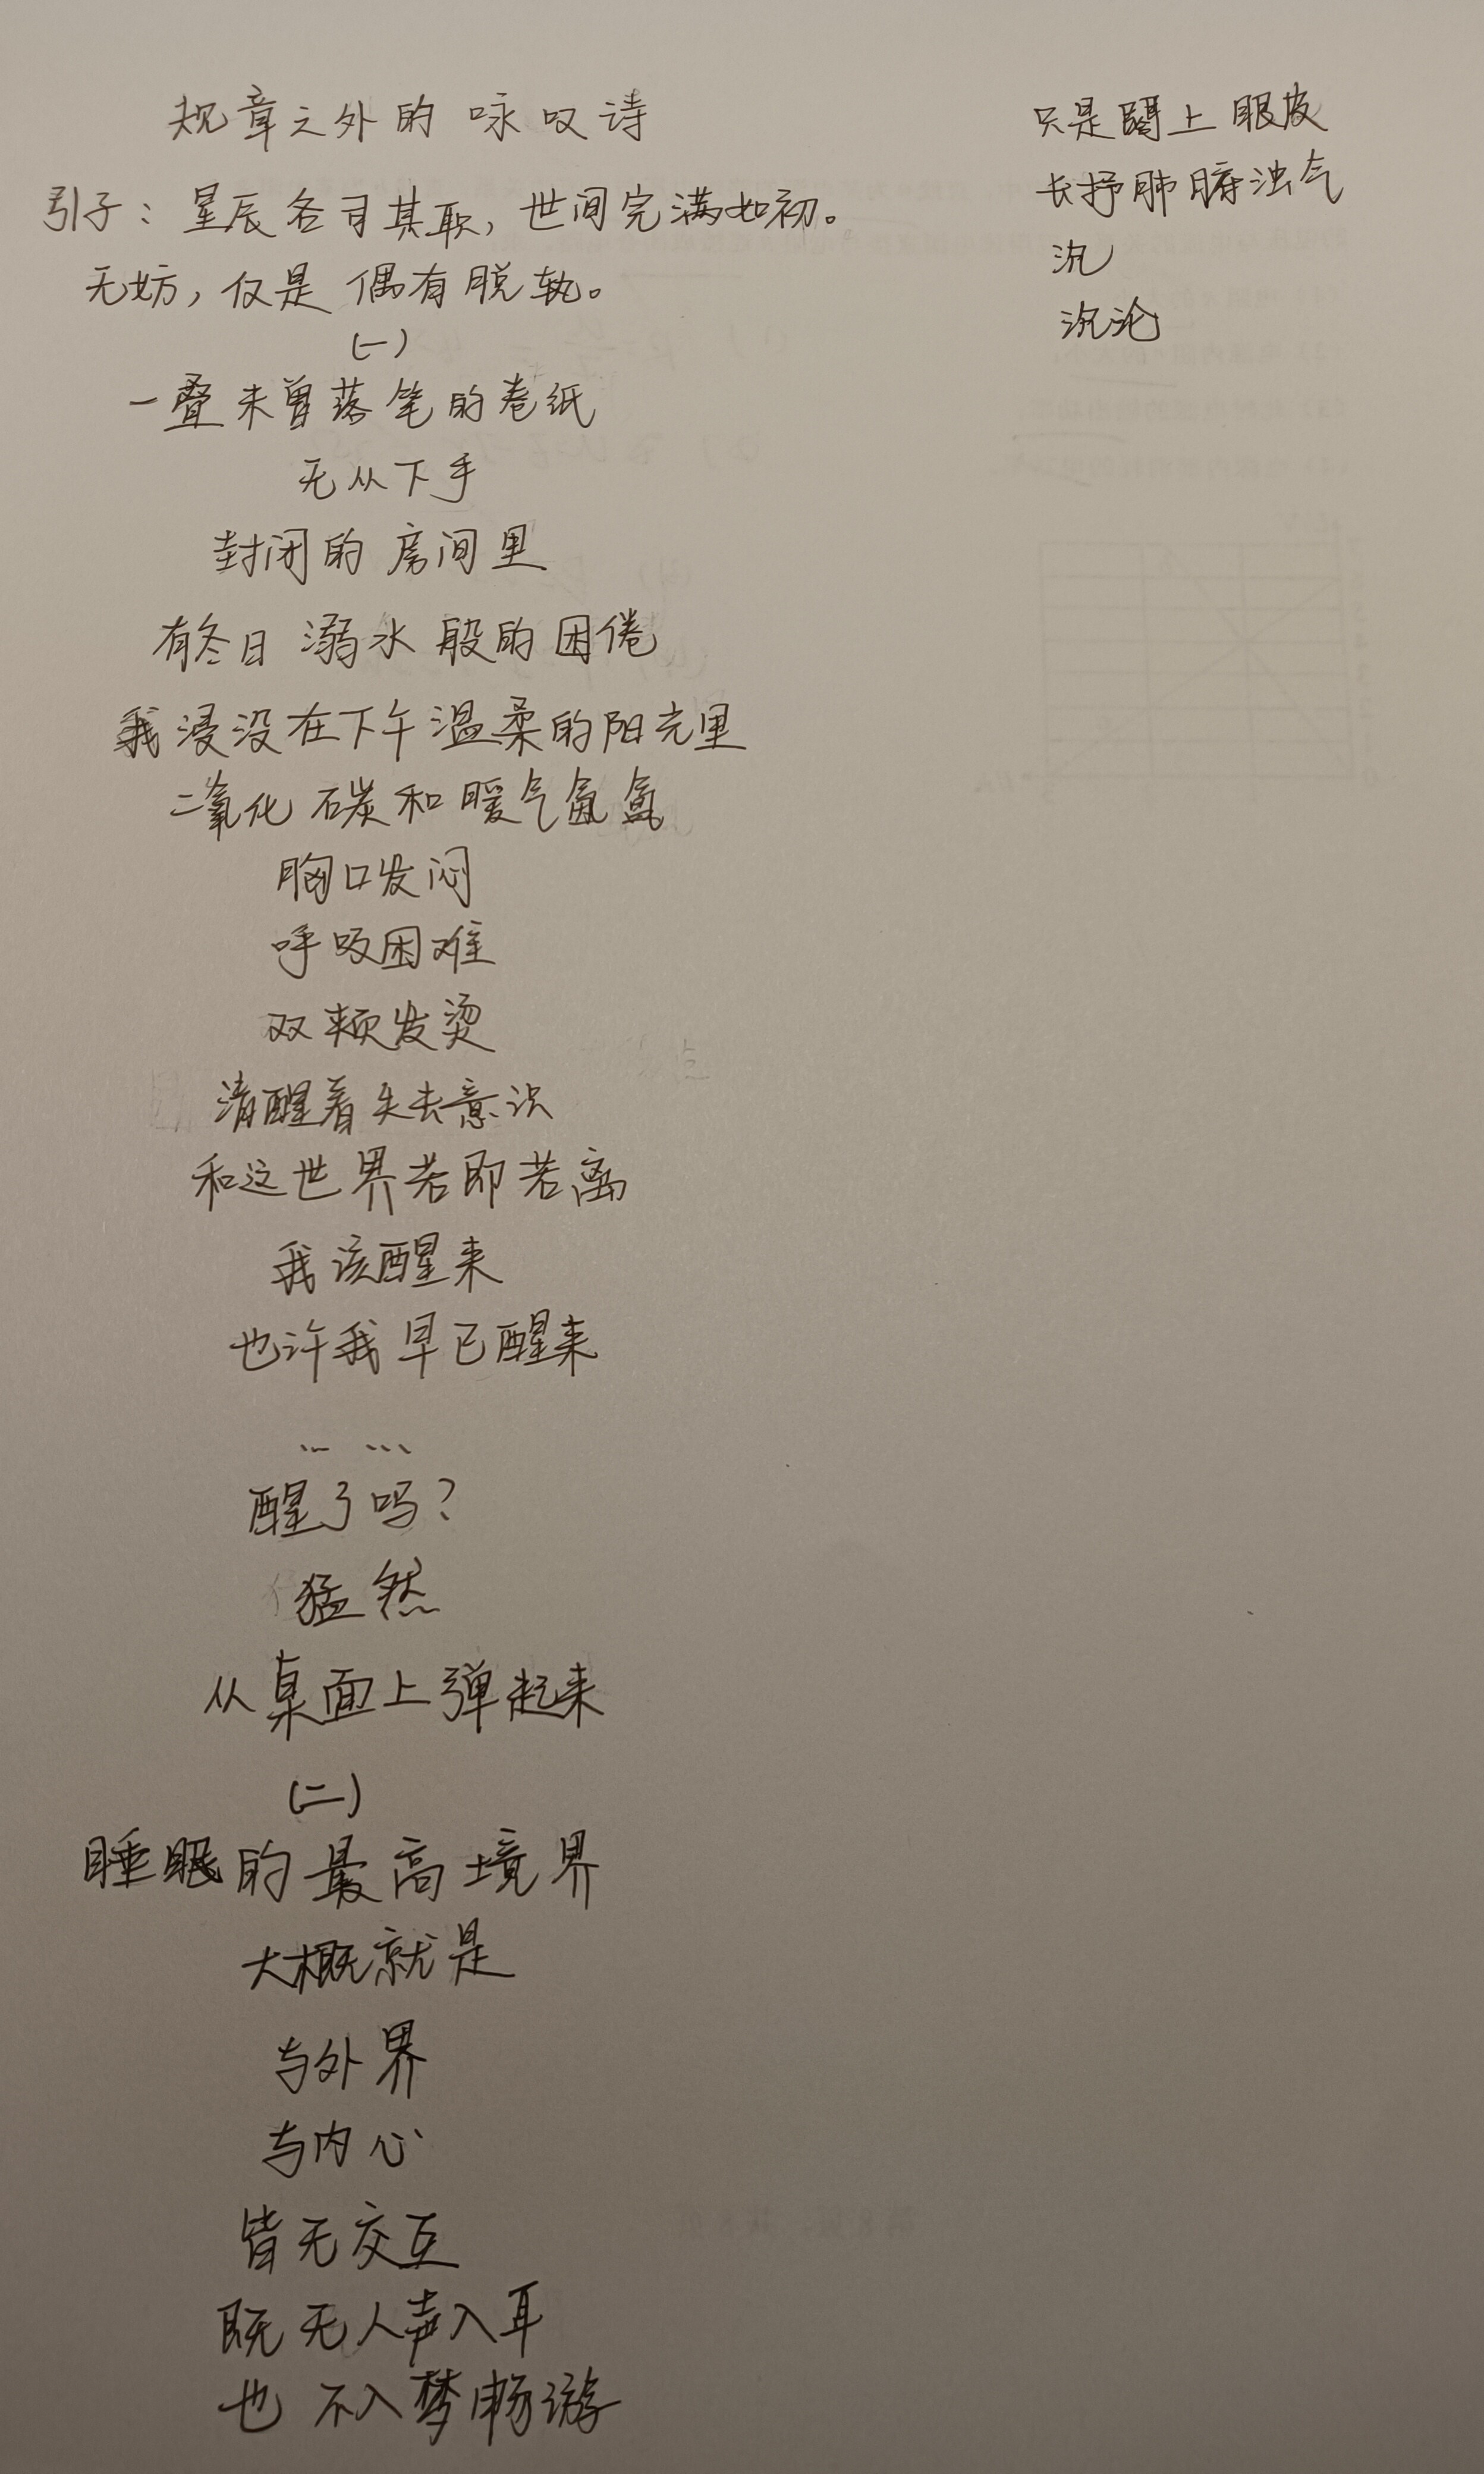 规章之外的咏叹诗
引子：星辰各司其职，世间完满如初。
无妨，仅是偶有脱轨。
（一）
一叠未曾落笔的卷纸
无从下手
封闭的房间里
有冬日溺水般的困倦
我浸没在下午温柔的阳光里
二氧化碳和暖气氤氲
胸口发闷
呼吸困难
双颊发烫
清醒着失去意识
和这世界若即若离
我该醒来
也许我早已醒来
……
醒了吗？
猛然
从桌面上弹起来
（二）
睡眠的最高境界
大概就是
与外界
与内心
皆无交互
既无人声入耳
也不入梦畅游
只是阖上眼皮
长抒肺腑浊气
沉
沉沦